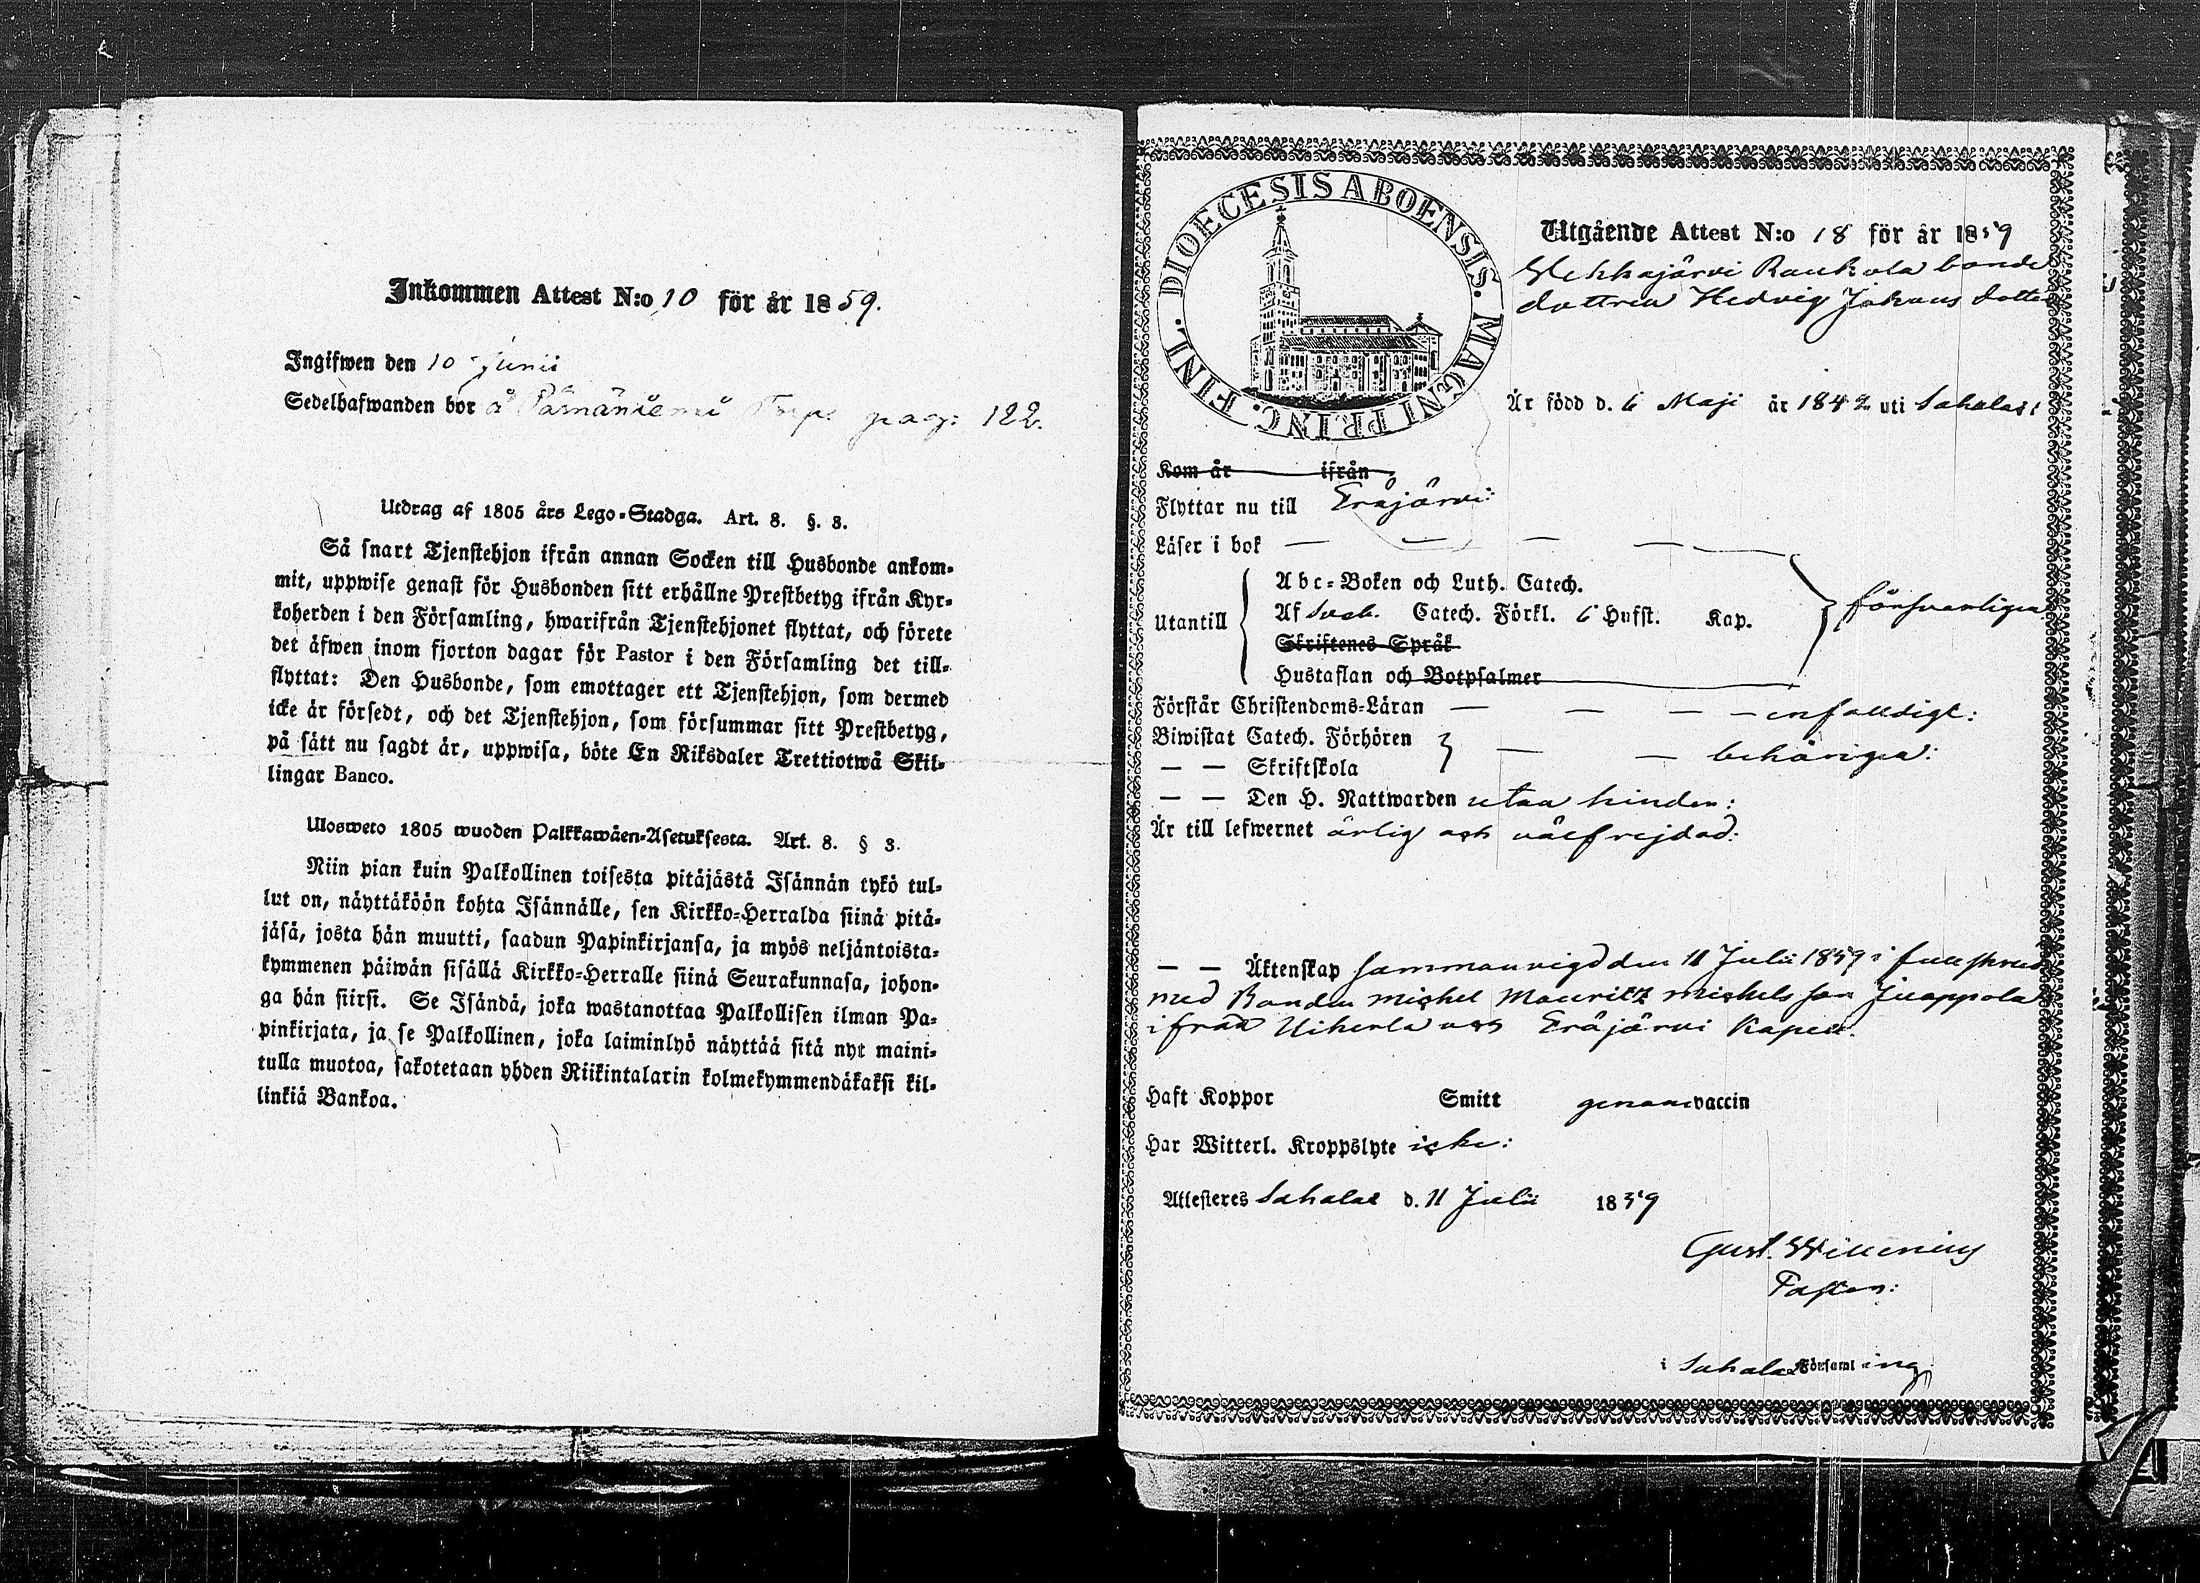 Inkommen Attest N:o 10 för år 1859.
Ingifwen den 10 Junii
Sedelhafwanden bor å Pärnäniemi Torp. pag: 122.
Utdrag af 1805 års Lego-Stadga. Art. 8. §. 3.
Så snart Tjenstehjon ifrån annan Socken till Husbonde ankom-
mit, uppwise genast för Husbonden sitt erhållne Prestbetyg ifrån Kyr-
koherden i den Församling, hwarifrån Tjenstehjonet flyttat, och förete
det äfwen inom fjorton dagar för Pastor i den Församling det till-
flyttat: Den Husbonde, som emottager ett Tjenstehjon, som dermed
icke är försedt, och det Tjenstehjon, som försummar sitt Prestbetyg,
på sätt nu sagdt är, uppwisa, böte En Riksdaler Trettiotwå Skil-
lingar Banco.
Ulosweto 1805 wuoden Palkkawäen-Asetuksesta. Art. 8. § 3.
Niin pian kuin Palkollinen toisesta pitäjästä Isännän tykö tul-
lut on, näyttäköön kohta Isännälle, sen Kirkko-Herralda siinä pitä-
jäsä, josta hän muutti, saadun Papinkirjansa, ja myös neljäntoista-
kymmenen päiwän sisällä Kirkko-Herralle siinä Seurakunnasa, johon-
ga hän siirsi. Se Isändä, joka wastanottaa Palkollisen ilman Pa-
pinkirjata, ja se Palkollinen, joka laiminlyö näyttää sitä nyt maini-
tulla muotoa, sakotetaan yhden Riikintalarin kolmekymmendäkaksi kil-
linkiä Bankoa.
DIOECESIS ABOENSIS. MAGNI PRINC. FINL.
Utgående Attest N:o 18 för år 1859
Vehkajärvi Raukola bonde
dottren Hedvig Johans dotter
Är född d. 6 Maji år 1842 uti Sahalax:
Kom år ifrån
Flyttar nu till Eräjärvi:
Läser i bok
Abc-Boken och Luth. Catech.
Utantill Af Sveb. Catech. Förkl. 6 Hufst. Kap. försvarligen
Skriftenes Språk
Hustaflan och Botpsalmer
Förstår Christendoms-Läran enfaldigt:
Biwistat Catech. Förhören
Skriftskola behörigen:
Den H. Nattwarden utan hinder:
Är till lefwernet ärlig och välfrejdad:
Äktenskap Sammanvigd den 11 Julii 1859 i
med Bonden Michel Mauritz Michels son Juappola
ifrån Uiherla och Eräjärvi Kapell.
Haft Koppor Smitt genom vaccin
Har Witterl. Kroppslyte icke:
Attesteres Sahalax d. 11 Julii 1859
Gust. Willenius
Pastor:
i Sahalax Församl ing